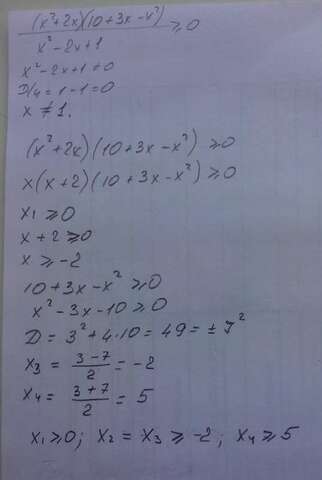 (x²+2x)(10+3x-x²)/(x²-2x+1) ≥0
x²-2x+1≠0
D/4=1-1=0
x≠1.
(x²+2x)(10+3x-x²)≥0
x(x+2)(10+3x-x²)≥0
x₁≥0
x+2≥0
x≥-2
10+3x-x²≥0
x²-3x-10≥0
D=3²+4·10=49=±7²
x₃=(3-7)/2=-2
x₄=(3+7)/2=5
x₁≥0; x₂=x₃≥-2; x₄≥5